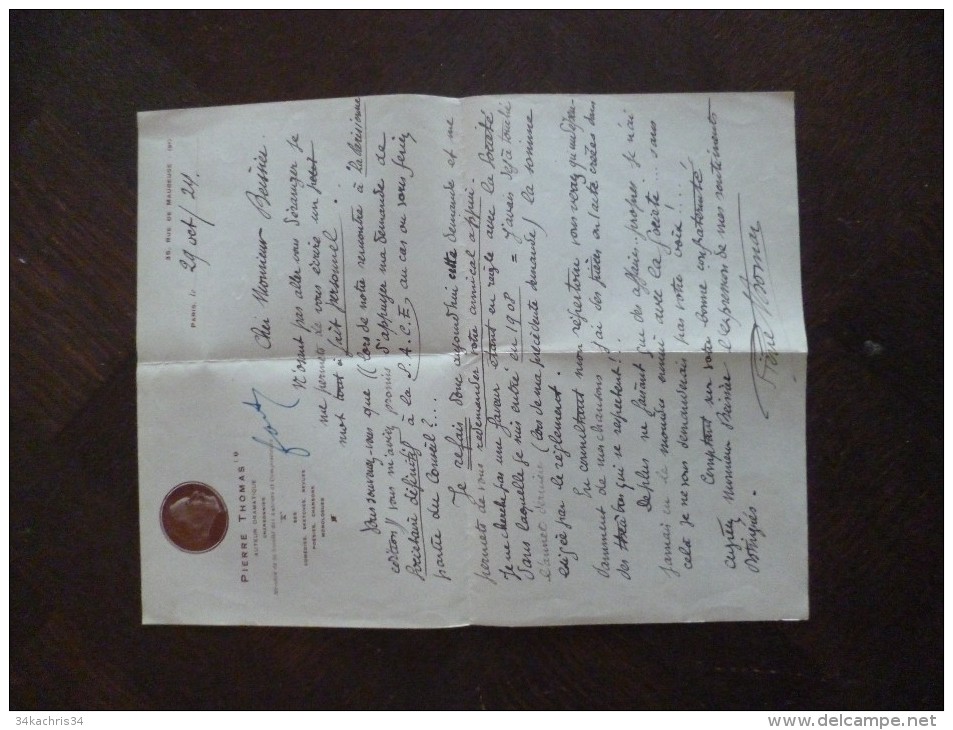 PIERRE THOMAS
AUTEUR DRAMATIQUE
CHANSONNIER
SES
COMÉDIES, SKETCHES, REVUES
POÉSIES, CHANSONS
MONOLOGUES
45, RUE DE MAUBEUGE
PARIS, le 29 oct/ 24.
Cher Monsieur
N'osant pas aller vous déranger je
me permets de vous écrire un petit
mot tout à fait personnel.
Vous souvenez-vous que (( lors de notre rencontre à la Parisienne
édition )) vous m'aviez promis d'appuyer ma demande de
Sociétaire définitif à la S.A.C.E. au cas où vous feriez
partie du Conseil?...
Je refais donc aujourd'hui cette demande et me
permets de vous redemander votre amical appui.
Je ne cherche pas une faveur étant en règle avec la Société
dans laquelle je suis entré en 1908 = J'avais déjà touché
l'année dernière (lors de ma précédente demande) la somme
exigée par le règlement.
En consultant mon répertoire vous verrez qu'indépen-
damment de mes chansons j'ai des pièces en 1 acte créées dans
des théâtres qui se respectent!..
De plus ne faisant que des affaires propres je n'ai
jamais eu le moindre ennui avec la Société.... sans
cela je ne vous demanderais pas votre voix!....
Comptant sur votre bonne confraternité
agréez Monsieur l'expression de mes sentiments
distingués.
Pierre Thomas
34kachris34
www.delcampe.net